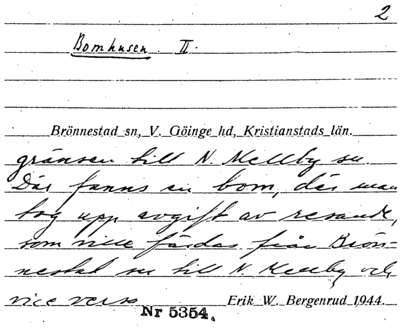 2
Bomhusen II.
Brönnestad sn, V. Göinge hd, Kristianstads län.
gränsen till N. Mellby sn.
Där fanns en bom, där man
tog upp avgift av resande,
som ville färdas från Brön-
nestad sn till N. Mellby och
vice versa
Erik W. Bergenrud 1944.
Nr 5354.